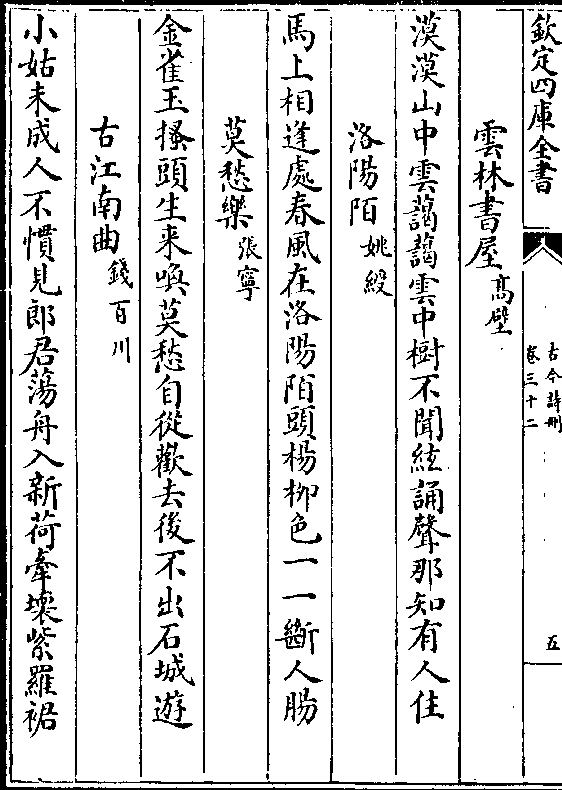 欽定四庫全書
古今詩刪
卷三十二
五
雲林書屋 高壁
漠漠山中雲藹藹雲中樹不聞絃誦聲那知有人住
洛陽陌 姚綬
馬上相逢處春風在洛陽陌頭楊柳色一一斷人腸
莫愁樂 張寧
金雀玉搔頭生来喚莫愁自從歡去後不出石城遊
古江南曲 錢百川
小姑未成人不慣見郎君蕩舟入新荷牽壞紫羅裙